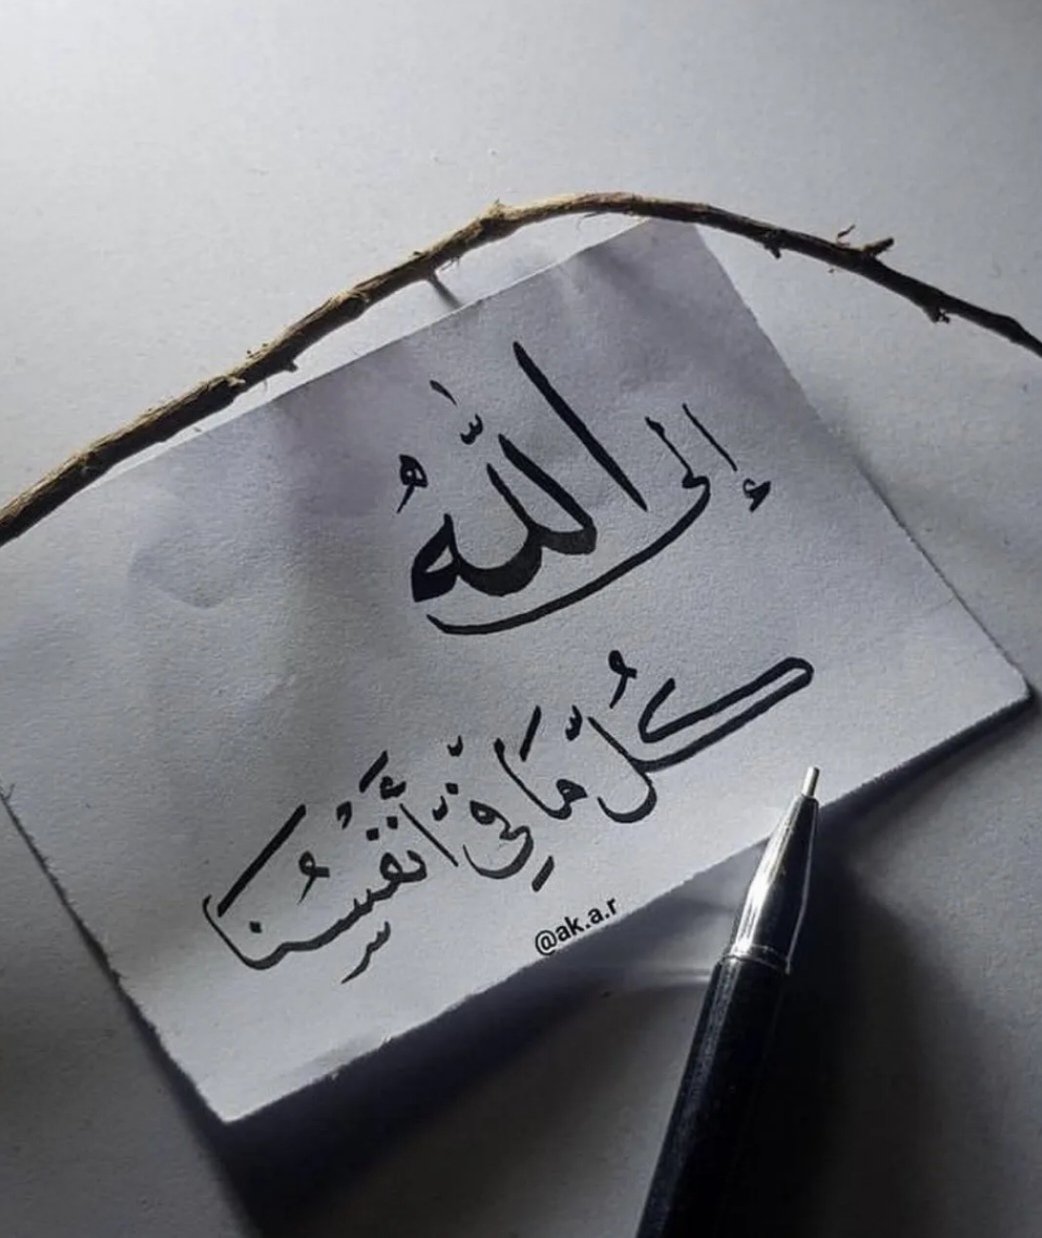 إلى اللّٰهُ
كُلّ مَا فِيّ أَنْفُسُنَا
@ak.a.r